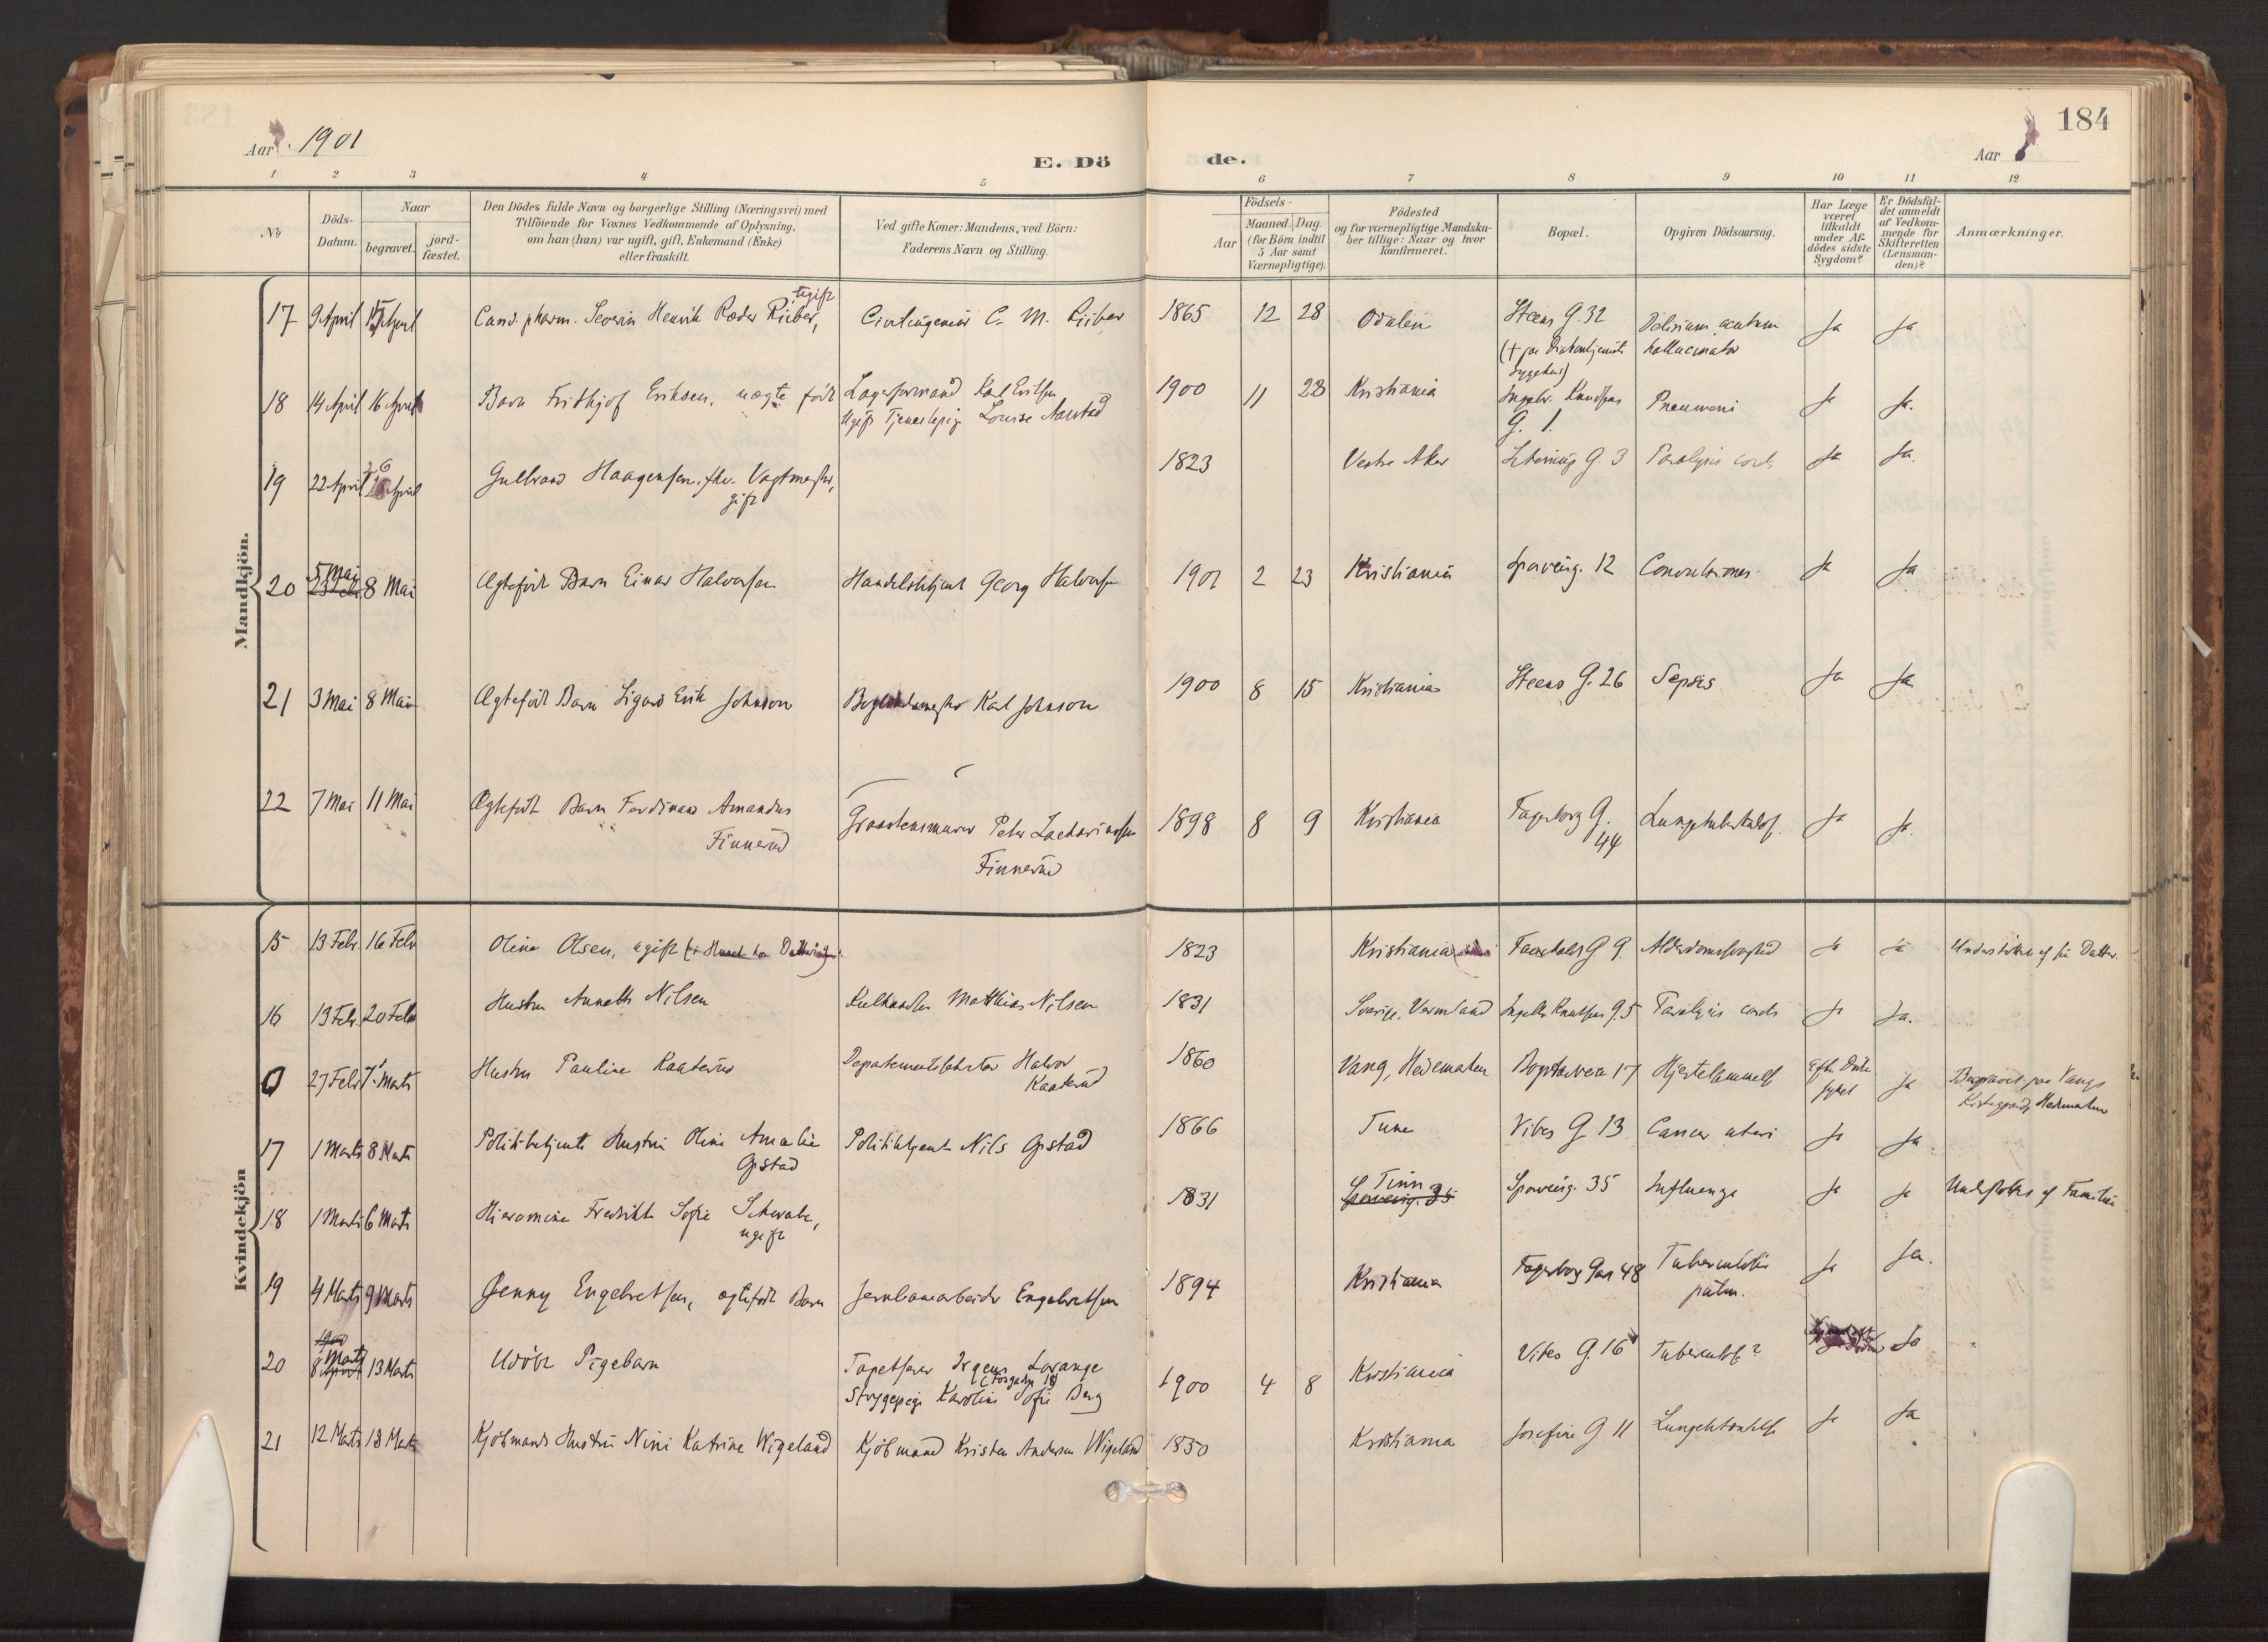 184
Aar 1901
E. Dö de.
Aar
1 2 3 4 5 6 7 8 9 10 11 12
№
Döds-Datum.
Naar
begravet.
jord-fæstet.
Den Dödes fulde Navn og borgerlige Stilling (Næringsvei) med
Tilföiende for Voxnes Vedkommende af Oplysning,
om han (hun) var ugift, gift, Enkemand (Enke)
eller fraskilt.
Ved gifte Koner: Mandens, ved Börn:
Faderens Navn og Stilling.
Födsels-
Aar
Maaned. Dag.
(for Börn indtil
5 Aar samt
Værnepligtige).
Födested
og for værnepligtige Mandska-
ber tillige: Naar og hvor
konfirmeret.
Bopæl.
Opgiven Dödsaarsag.
Har Læge
været
tilkaldt
under Af-
dödes sidste
Sygdom?
Er Dödsfal-
det anmeldt
af Vedkom-
mende for
Skifteretten
(Lensman-
den)?
Anmærkninger.
Mandkjön.
ugift
17 9 April 15 April Cand. pharm. Severin Henrik Ræder Riiber, Civilingeniör C. M. Riiber 1865 12 28 Odalen Steens G. 32 Delirium acutum Ja Ja
(+ paa Diakonhjemmets hallucinator
Sygehus)
18 14 April 16 April Barn Fridthjof Eriksen, uægte födt Lagerformand Karl Eriksen 1900 11 28 Kristiania Ingebr. Knudsens Pneumoni Ja Ja.
Ugift Tjenestepige Louise Aanstad G. 1.
19 22 April 26 April Gulbrand Haagensen, fhv. Vagtmester, 1823 Vestre Aker Schøning G. 3 Paralysis cordis Ja Ja.
gift
20 5 Mai 8 Mai Ægtefödt Barn Einar Halvorsen Handelsbetjent Georg Halvorsen 1901 2 23 Kristiania Sporveisg. 12 Convulsiones Ja Ja
23 Feb.
21 3 Mai 8 Mai Ægtefödt Barn Sigurd Erik Johnson Karl Johnson 1900 8 15 Kristiania Steens G. 26 Sepsis Ja Ja
22 7 Mai 11 Mai Ægtefödt Barn Ferdinand Amandus Graastensmurer Peter Zachariassen 1898 8 9 Kristiania Fagerborg G. Lungetuberkulose. Ja Ja.
Finnerud Finnerud 44
Kvindekjön
15 13 Febr. 16 Febr Oline Olsen, ugift 1823 Kristiania G 9. Alderdomssvaghed Ja Ja Understöttes af sin Datter.
16 13 Febr. 20 Febr Hustru Annette Nilsen Kulhandler Matthias Nilsen 1831 Sverige, Vermland Ingebr Knutsens G. 5 Paralysis cordis Ja Ja.
0 27 Febr 7 Marts Hustru Pauline Kaaterud Departementsfuldmægtig Halvor 1860 Vang, Hedemarken Bogstadveien 17 Hjertelammelse Efter Ja Begravet paa Vangs
Kaaterud Kirkegaard, Hedemarken
17 1 Marts 8 Marts Politibetjents Hustru Oline Amalie Politibetjent Nils Opstad 1866 Tune Vibes G 13 Cancer uteri Ja Ja
Opstad
18 1 Marts 6 Marts Hieronomine Fredrikke Sofie Schwabe, 1831 Tinn Sporveisg. 35 Influenza Ja Ja Understöttes af Familie
ugift Sporveisg. 35
19 4 Marts 9 Marts Jenny Engebretsen, ægtefödt Barn Jernbanearbeider Engebretsen 1894 Kristiania Fagerborg Gas 48 Tuberculosis Ja Ja.
pulm.
1900
20 8 Marts 13 Marts Udöbt Pigebarn Tapetserer Irgens Lorange 1900 4 8 Kristiania Vibes G. 16 Tuberculose? Ja
Strygepige Karoline Sofie Berg
21 12 Marts 18 Marts Kjöbmands Hustru Nini Katrine Wigeland Kjöbmand Kristen Andersen Wigeland 1850 Kristiania Josefine G 11 Lungebetændelse Ja Ja